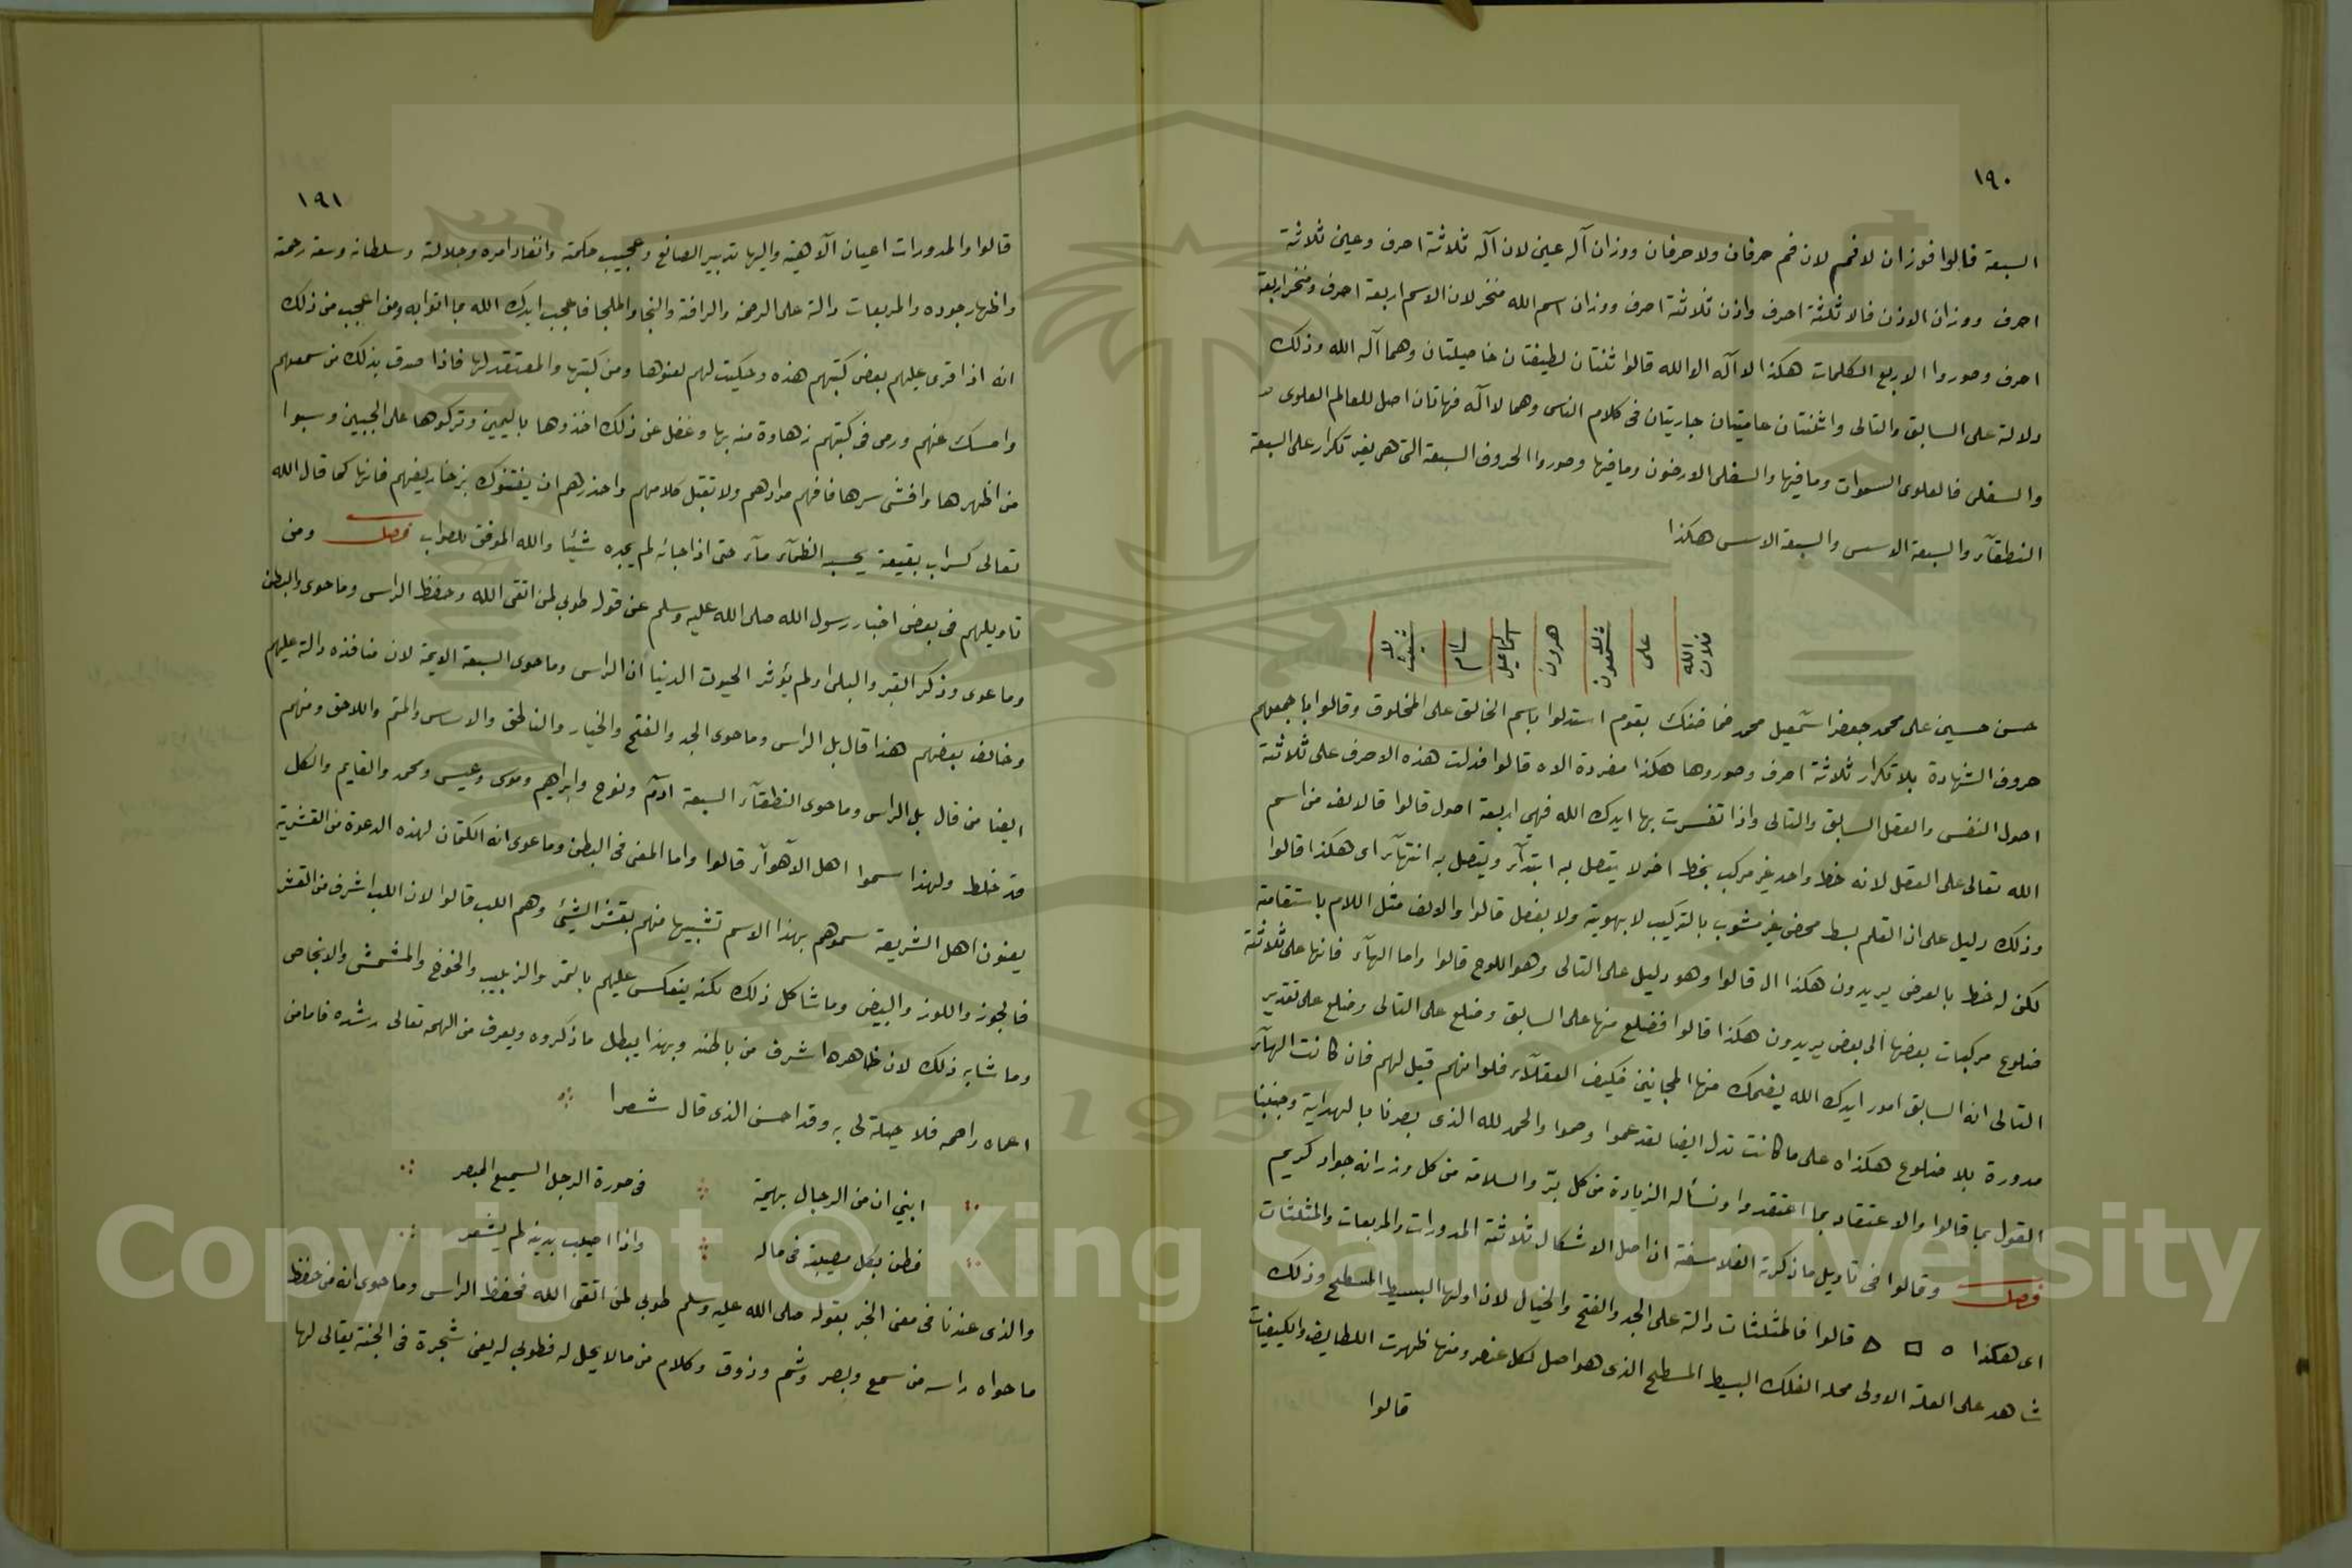 ١٩٠
السبعة قالوا فوزان لا فم لان فم حرفان ولا حرفان ووزان آله عين لان آله ثلاثة احرف وعين ثلاثة
احرف ووزان الاذن فالا ثلثة احرف واذن ثلاثة احرف ووزان اسم الله منخر لان الاسم اربعة احرف ومنخر اربعة
احرف وصوروا الاربع الكلمات هكذا لا آله الا الله قالوا ثنتان لطيفتان خاصيلتان وهما آله الله وذلك
دلالة على السابق والتالى واثنتان عاميتان جاريتان فى كلام الناس وهما لا آله فهاتان اصل للعالم العلوى
والسفلى فالعلوى السموات وما فيها والسفلى الارضون وما فيها وصوروا الحروف السبعة التى هى بغير تكرار على السبعة
النطقآء والسبعة الاسس والسبعة الاسس هكذا
لا شيث سام اسماعيل هرون شمعون على الله فلان
حسن حسين على محمد جعفر اسمعيل محمد فما ضنك بقوم استدلوا باسم الخالق على المخلوق وقالوا باجمعهم
حروف الشهادة بلا تكرار ثلاثة احرف وصوروها هكذا مفردة الاه قالوا فدلت هذه الاحرف على ثلاثة
اصول النفس والعقل السابق والتالى واذا تفسرت بها ايدك الله فهى اربعة اصول قالوا فالالف من اسم
الله تعالى على العقل لانه خط واحد غير مركب بخط اخر لا يتصل به ابتدآء ويتصل به انتهآء اى هكذا قالوا
وذلك دليل على ان القلم بسط محض غير مشوب بالتركيب لا بهوية ولا بفصل قالوا والالف مثل اللام باستقامة
لكن له خط بالعرض يريدون هكذا ال قالوا وهو دليل على التالى وهو اللوح قالوا واما الهآء فانها على ثلاثة
ضلوع مركبات بعضها الى بعض يريدون هكذا قالوا فضلع منها على السابق وضلع على التالى وضلع على تقدير
التالى انه السابق امور ايدك الله يضحك منها المجانين فكيف العقلآء فلوا انهم قيل لهم فان كانت الهآء
مدورة بلا ضلوع هكذا ه على ما كانت تدل ايضا لقد عموا وصموا والحمد لله الذى بصرنا بالهداية وجنبنا
القول بما قالوا والاعتقاد بما اعتقدوا ونسأله الزيادة من كل بّر والسلامة من كل وزر انه جواد كريم
فصل وقالوا فى تاويل ما ذكرته الفلاسفة ان اصل الاشكال ثلاثة المدورات والمربعات والمثلثات
اى هكذا قالوا فالمثلثات دالة على الجد والفتح والخيال لان اولها البسيط المسطح وذلك
شاهد على العلة الاولى محله الفلك البسيط المسطح الذى هو اصل لكل عنصر ومنها ظهرت اللطايف والكيفيات
قالوا
١٩١
قالوا والمدورات اعيان الآهية واليها تدبير الصانع وعجيب حكمته وانفاد امره وجلالته وسلطانه وسعة رحمته
واظهار جوده والمربعات دالة على الرحمة والرافة والنجا والملجا فاعجب ايدك الله بما اتوا به ومن اعجب من ذلك
انه اذا قرى عليهم بعض كتبهم هذه وحكيت لهم لعنوها ومن كتبها والمعتقد لها فاذا صدق بذلك من سمعهم
وامسك عنهم ورمى فى كتبهم زهادة منه بها وغفل عن ذلك اخذوها باليمين وتركوها على الجبين وسبوا
من اظهرها وافشى سرها فافهم مرادهم ولا تقبل كلامهم واحذرهم ان يفتنوك بزخاريفهم فانها كما قال الله
تعالى كسراب بقيعة يحسبه الظمآء مآء حتى اذا جائه لم يجده شيئا والله الموفق للصواب فصل ومن
تاويلهم فى بعض اخبار رسول الله صلى الله عليه وسلم عن قوله طوبى لمن اتقى الله وحفظ الراس وما حوى والبطن
وما عوى وذكر القبر والبلى ولم يؤثر الحيوت الدنيا ان الراس وما حوى السبعة الايمة لان منافذه دالة عليهم
وخالف بعضهم هذا قال بل الراس وما حوى الجد والفتح والخيار والناطق والاساس والمتم واللاحق ومنهم
ايضا من قال بل الراس وما حوى النطقآء السبعة ادم ونوح وابراهيم وموسى وعيسى ومحمد والقايم والكل
قد خلط ولهذا سموا اهل الاهوآء قالوا واما المعنى فى البطن وما عوى انه الكتمان لهذه الدعوة من القشرية
يعنون اهل الشريعة سموهم بهذا الاسم تشبيها منهم بقشر الشئ وهم اللب قالوا لان اللب اشرف من القشر
فالجوز واللوز والبيض وما شاكل ذلك لكنه ينعكس عليهم بالتمر والزبيب والخوخ والمشمش والانجاص
وما شابه ذلك لان ظاهرها اشرف من باطنه وبهذا يبطل ما ذكروه ويعرف من الهمه تعالى رشده فاما من
اعماه واصمه فلا حيلة لى به وقد احسن الذى قال شعرا
ابني ان من الرجال بهيمة فى صورة الرجل السميع المبصر
فطن بكل مصيبة فى ماله واذا اصيب بدينه لم يشعر
والذى عندنا فى معنى الخبر بقوله صلى الله عليه وسلم طوبى لمن اتقى الله فحفظ الراس وما حوى انه من حفظ
ما حواه راسه من سمع وبصر وشم وذوق وكلام من ما لا يحل له فطوبى له يعنى شجرة فى الجنة يقال لها
Copyright © King Saud University
195